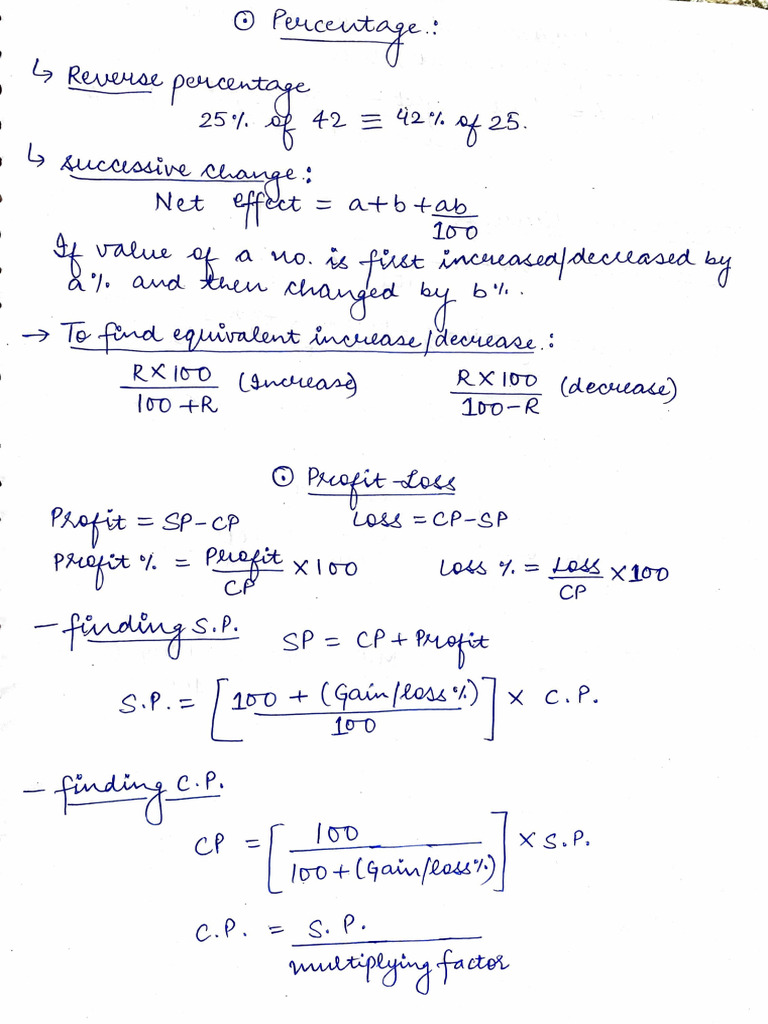 ⊙ Percentage :
↳ Reverse percentage
25% of 42 ≡ 42% of 25.
↳ Successive change :
Net effect = a+b+ab/100
If value of a no. is first increased/decreased by
a% and then changed by b%.
→ To find equivalent increase/decrease :
R×100/100+R (Increase) R×100/100-R (decrease)
⊙ Profit-Loss
Profit = SP-CP Loss = CP-SP
Profit % = Profit/CP ×100 Loss % = Loss/CP ×100
- finding S.P. SP = CP + Profit
S.P. = [100 + (Gain/loss %)/100] × C.P.
- finding C.P.
CP = [100/100+(Gain/loss%)] × S.P.
C.P. = S.P./multiplying factor